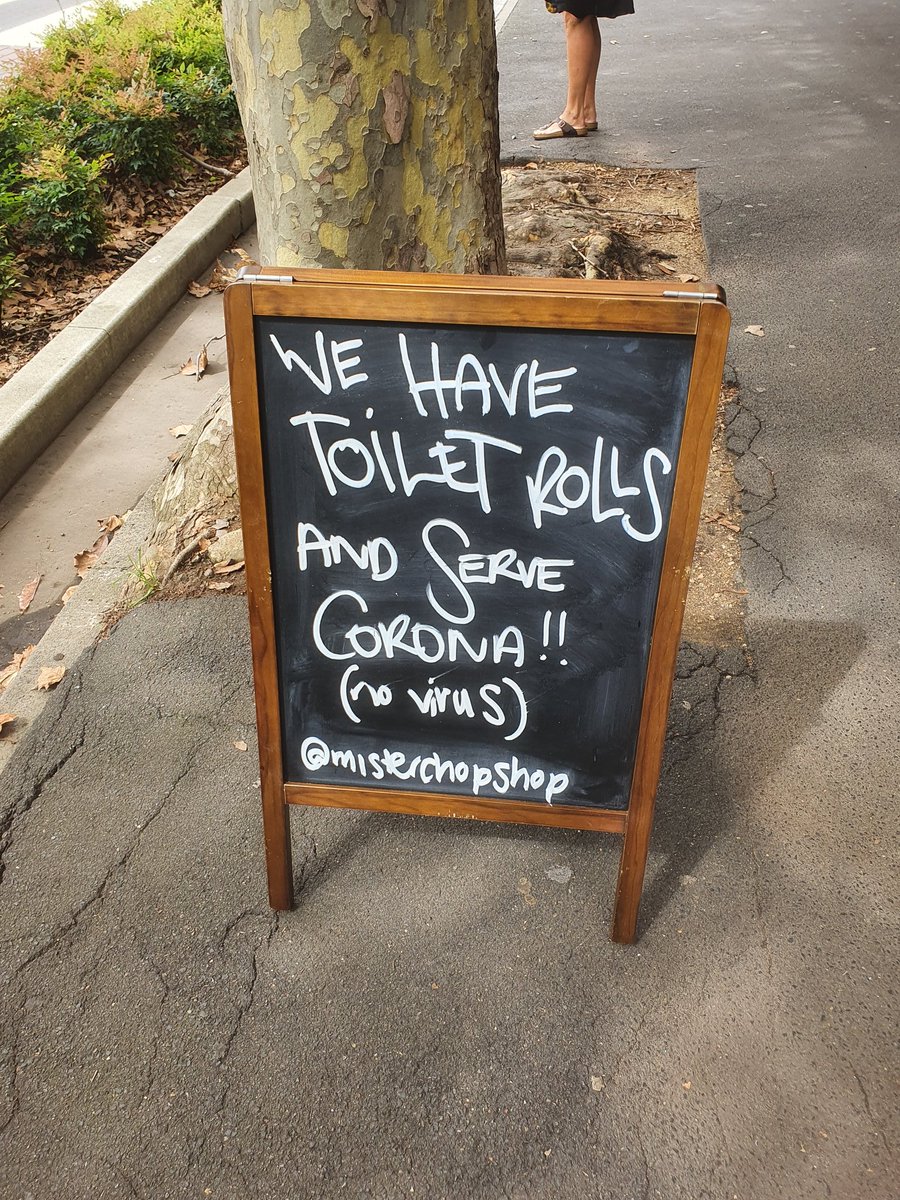 WE HAVE
TOILET ROLLS
AND SERVE
CORONA!!
(no virus)
@misterchopshop